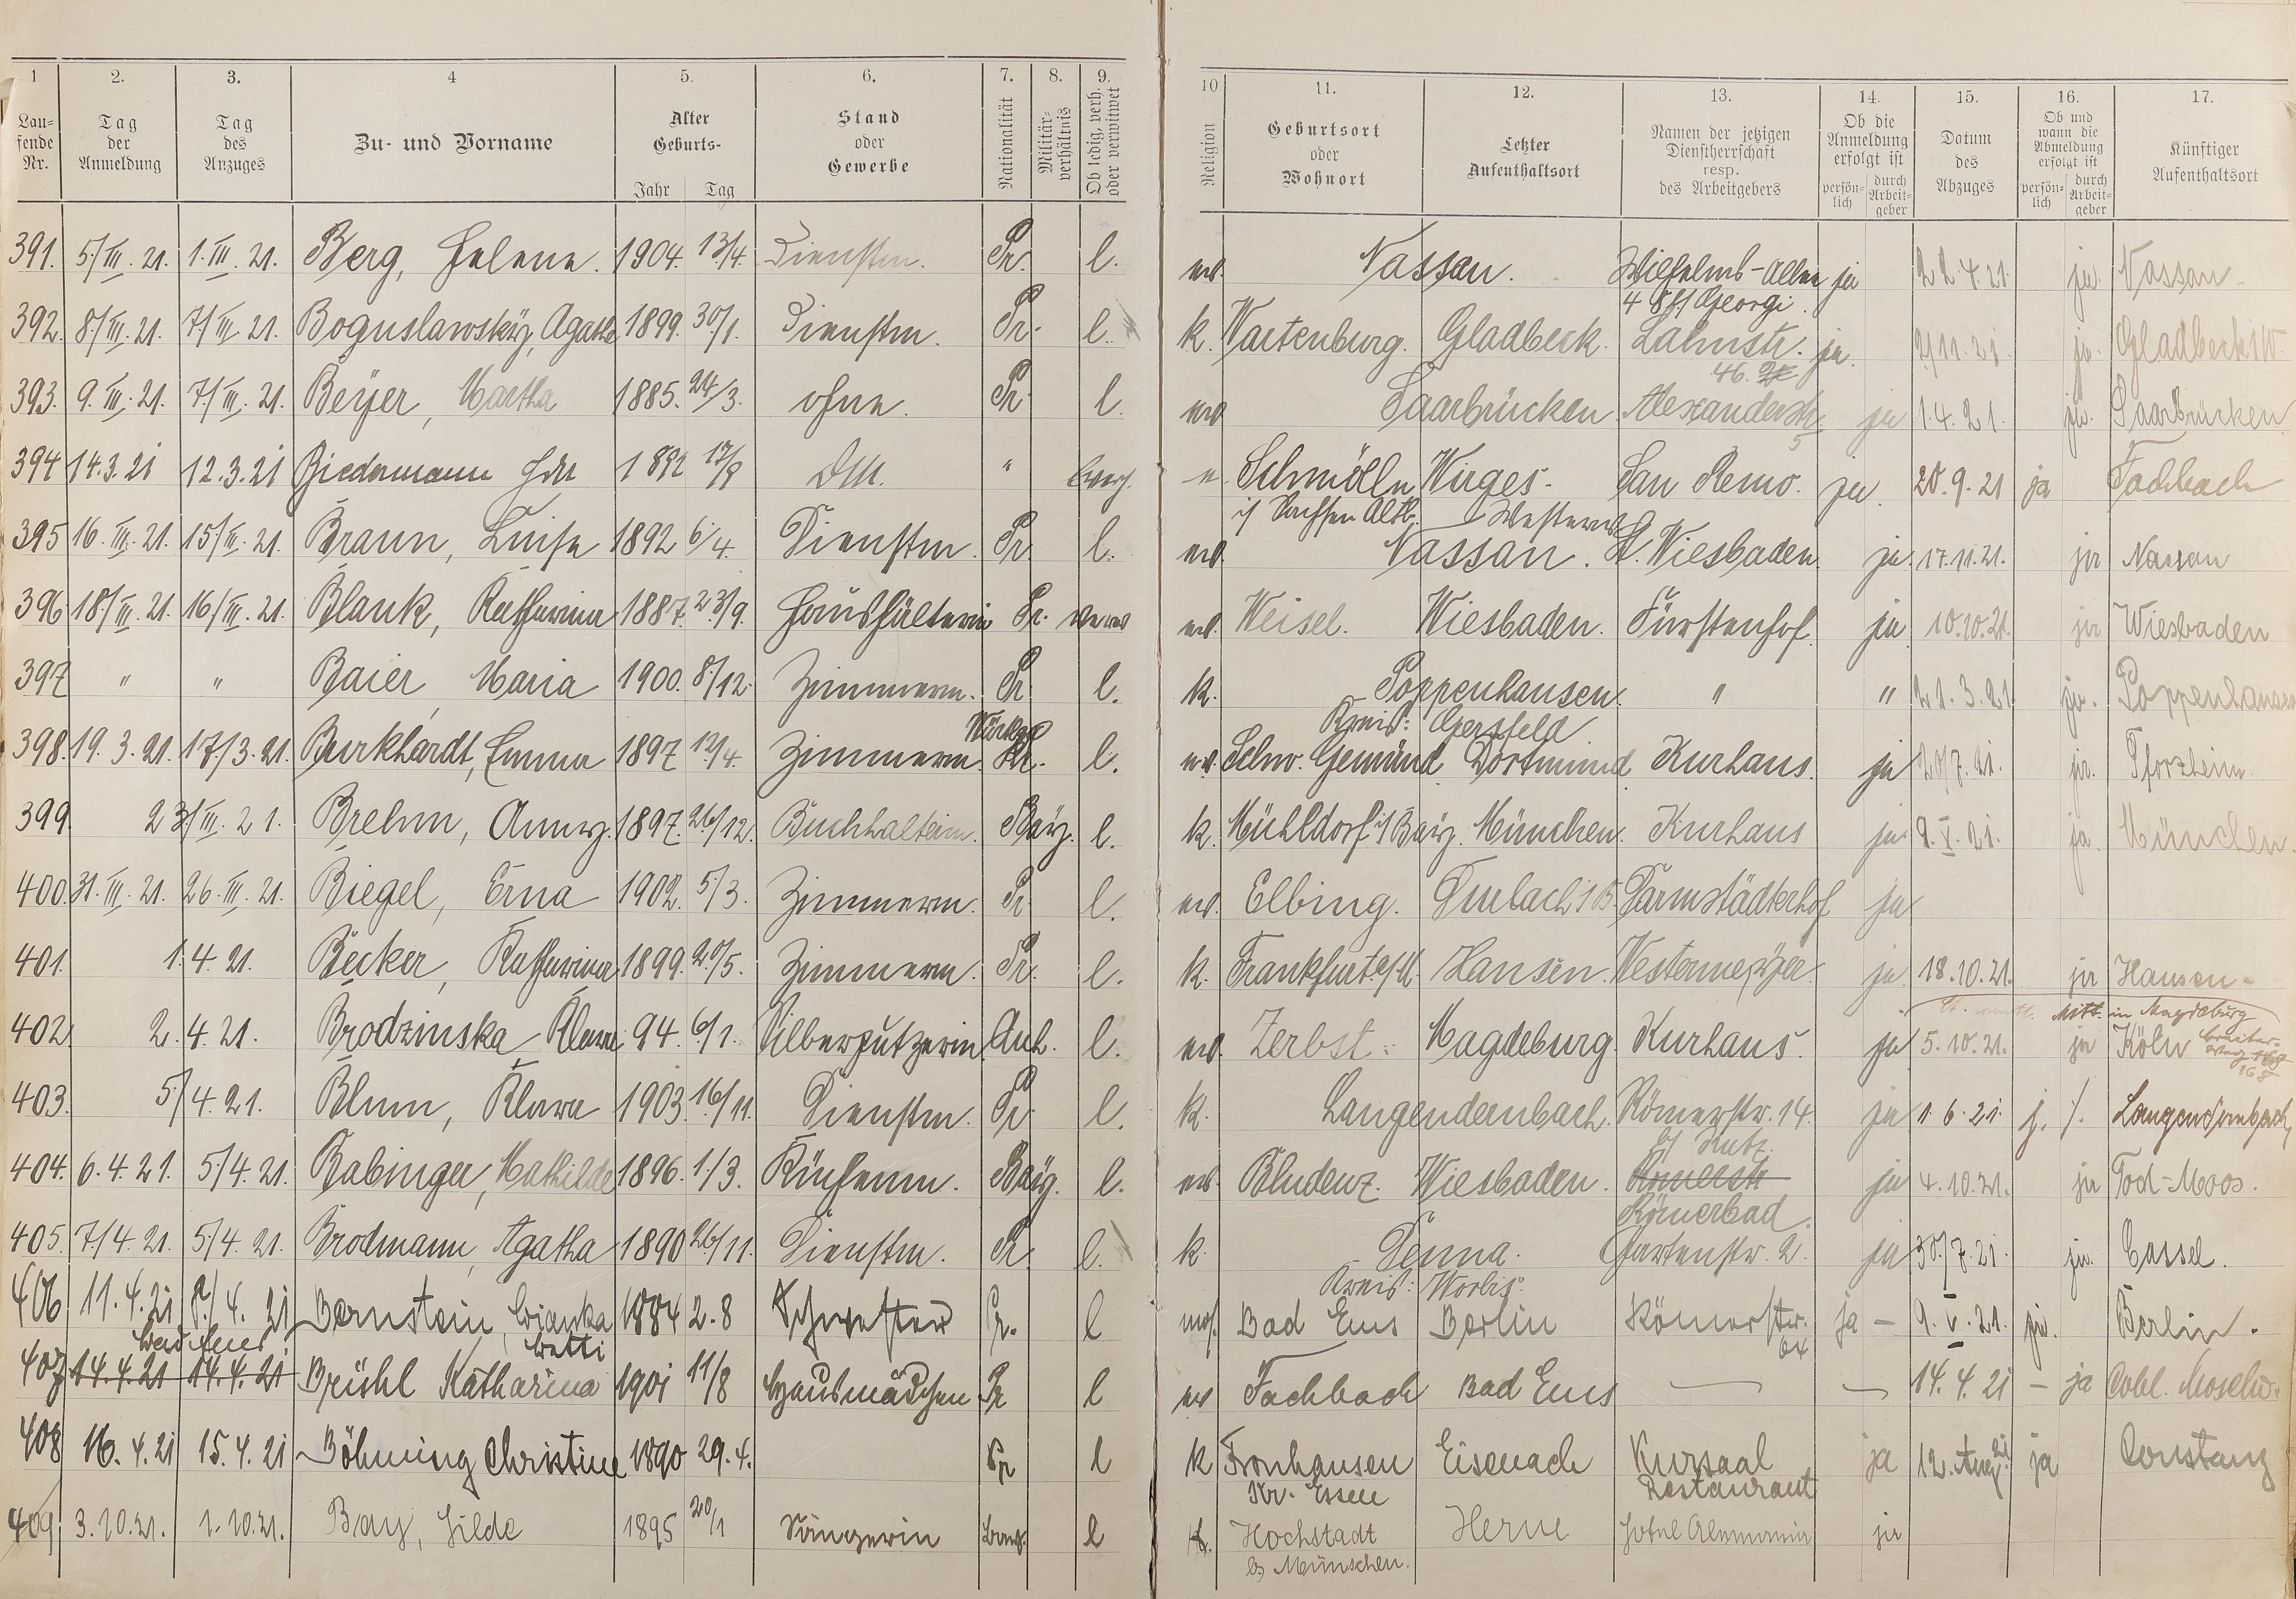 1 2. 3. 4 5. 6. 7. 8. 9. 10 11. 12. 13. 14. 15. 16. 17.
Lau-
fende
Nr.
Tag
der
Anmeldung
Tag
des
Anzuges
Zu- und Vorname
Alter
Geburts-
Jahr Tag
Stand
oder
Gewerbe
Nationalität
Militär-
verhältnis
Ob ledig, verh.
oder verwitwet
Religion
Geburtsort
oder
Wohnort
Letzter
Aufenthaltsort
Namen der jetzigen
Dienstherrschaft
resp.
des Arbeitgebers
Ob die
Anmeldung
erfolgt ist
persön-
lich
durch
Arbeit-
geber
Datum
des
Abzuges
Ob und
wann die
Abmeldung
erfolgt ist
persön-
lich
durch
Arbeit-
geber
Künftiger
Aufenthaltsort
391. 5/III. 21. 1. III. 21. Berg, Helene. 1904. 13/4. Dienstm. Pr. l. ev. Nassau. Wilhelms-Allee ja 22.4.21. ja. Nassau.
4 Georgi.
392. 8/III. 21. 7/III. 21. Boguslawsky, Agathe 1899. 30/1. Dienstm. Pr. l. k. Wartenburg. Gladbeck. Lahnstr. ja. 2/11.21. ja. Gladbeck i/W.
46.
393. 9. III. 21. 7/III. 21. Beyer, Martha 1885. 24/3. ohne. Pr. l. ev. Saarbrücken. Alexanderstr. ja 1.4.21. ja. Saarbrücken
5
394 14.3.21 12.3.21 Biedermann 1892 " e. Schmölln Wirges. San Remo. ja. 20.9.21 ja Fachbach
i/ Sachsen Altb. Westerwd
395 16. III. 21. 15/III. 21. Braun, Luise 1892 6/4. Dienstm. Pr. l. ev. Nassau. St. Wiesbaden. ja. 17.11.21. ja Nassau
396 18/III. 21. 16/III. 21. Blank, Katharina 1887. 23/9. Haushälterin Pr. verw ev. Weisel. Wiesbaden. Fürstenhof. ja 10.10.21. ja Wiesbaden
397 " " Baier, Maria 1900. 8/12. Zimmerm. Pr. l. k. Poppenhausen. " " 21.3.21 ja. Poppenhausen
Kreis: Gersfeld
398. 19. 3. 21. 17/3. 21. Burkhardt, Emma 1897 12/4. Zimmerm. Pr. l. ev. Schw. Gemünd Dortmund Kurhaus. ja 20/7.21. ja. Pforzheim.
399. 23/III. 21. Brehm, Anny. 1897. 26/12. Buchhalterin. Bay. l. k. Mühldorf i/Bay. München. Kurhaus ja 9. V. 21. ja. München.
400. 31. III. 21. 26. III. 21. Biegel, Erna 1902. 5/3. Zimmerm. Pr. l. ev. Elbing. Durlach i B. Darmstädterhof ja
401. 1. 4. 21. Becker, Katharina 1899. 20/5. Zimmerm. Pr. l. k. Frankfurt a/M. Hansen. ja 18.10.21. ja Hausen.
Mitt. in Magdeburg
402. 2. 4. 21. Brodzinska, Klara 94. 6/1. Silberputzerin Anh. l. ev. Zerbst. Magdeburg. Kurhaus. ja 5.10.21. ja Köln
168
403. 5/4. 21. Blum, Klara 1903. 16/11. Dienstm. Pr. l. k. Langendernbach. Römerstr. 14. ja 1.6.21. j. /. Langendernbach
404. 6.4.21. 5/4.21. Babinger, Mathilde 1896. 1/3. Küchenm. Bay. l. ev. Bludenz. Wiesbaden. Römerstr ja 4.10.21. ja Tod-Moos.
Römerbad.
405. 7/4. 21. 5/4. 21. Brodmann, Agatha 1890 26/11. Dienstm. Pr. l. k. Deuna. Gartenstr. 2. ja 30/7.21. ja. Cassel.
Kreis: Worbis.
406 11. 4. 21 8/4. 21 Bernstein, Bianka 1884 2.8 Schwester Pr. l mos. Bad Ems Berlin Römerstr. ja – 9. V. 21. ja. Berlin.
Betti
407 14.4.21 14.4.21 Brühl Katharina 1901 11/8 Hausmädchen Pr l ev Fachbach Bad Ems — — 14. 4. 21 – ja Cobl. Moselw.
408 16. 4. 21 15. 4. 21 Böhning Christine 1890 29. 4. Pr l k Fronhausen Eisenach Kursaal ja 12. Aug. 21 ja Constanz
Kr. Essen Restaurant
409 3.10.21. 1.10.21. Bay, Hilde 1895 20/1 Sängerin l k. Hochstadt Herne Hotel Alemannia ja
b. München.